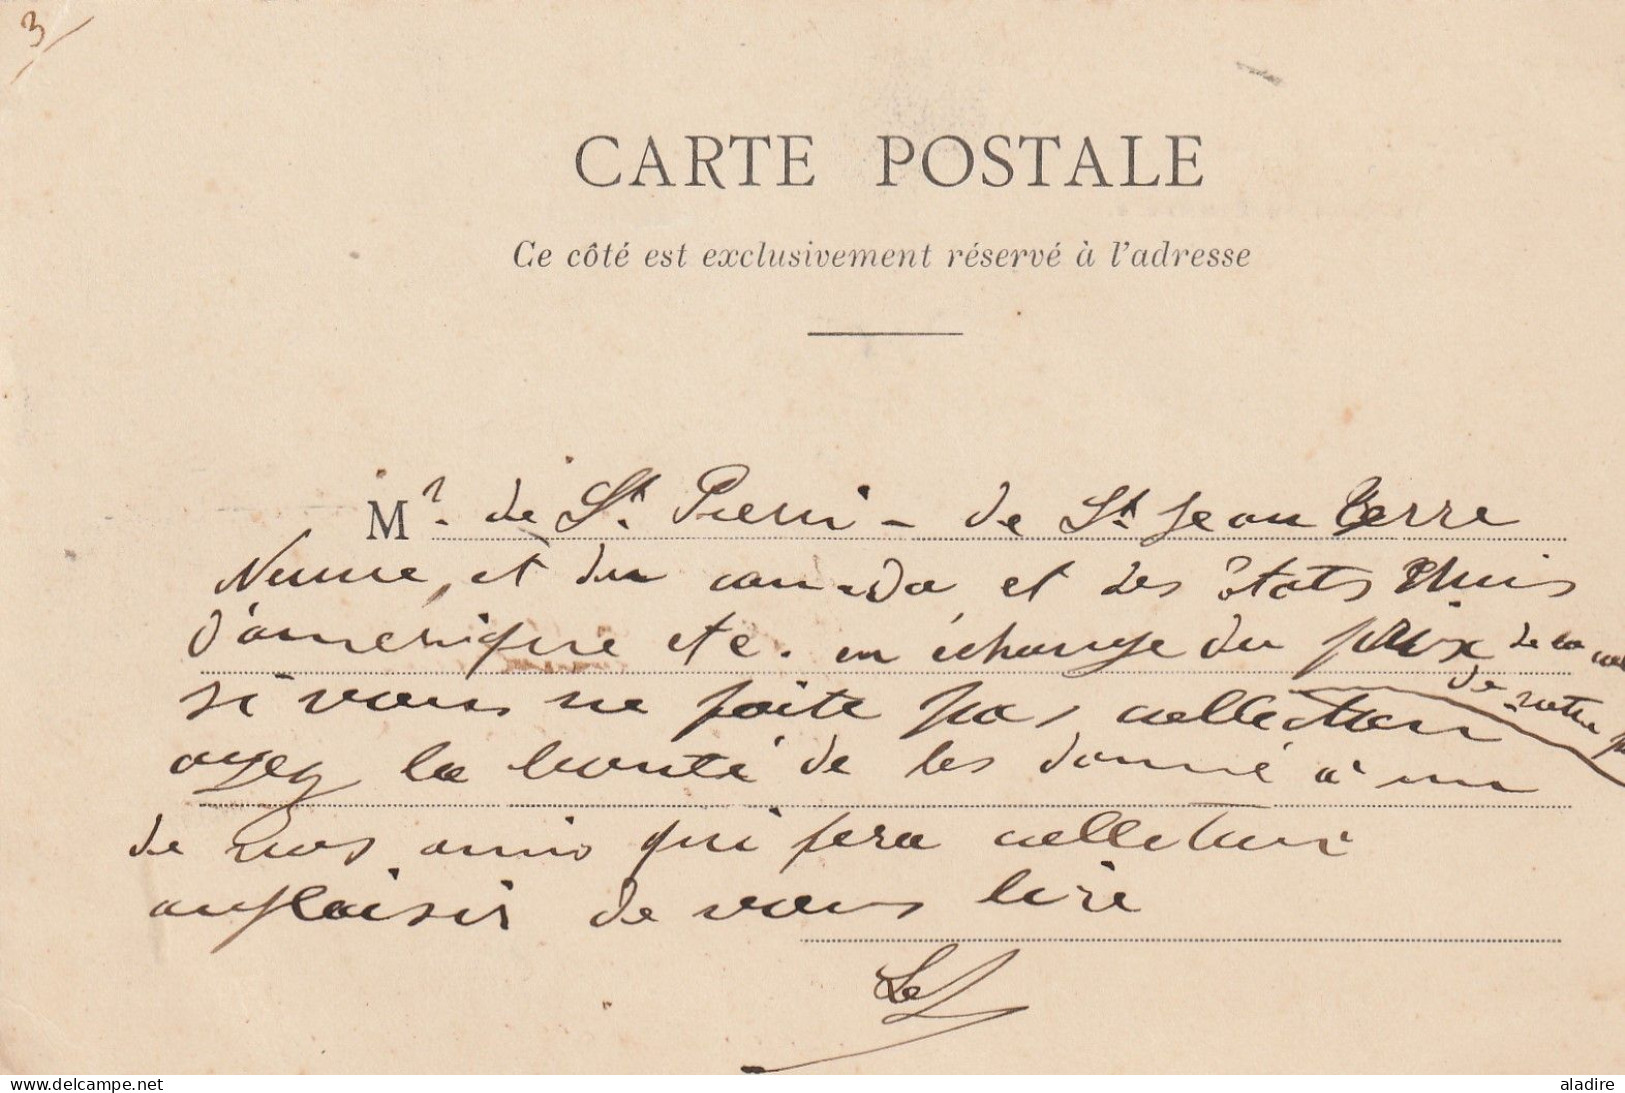 3
CARTE POSTALE
Ce côté est exclusivement réservé à l'adresse
Mr. de St. Pierri - de St Jean terre
Neuve, et du canada et des états Unis
d'amérique etc. en échange du prix de la
de votre
si vous ne faite pas collection
ayez la bonté de les donné à un
de vos amis qui fera collection
auplaisir de vous lire
Le
www.delcampe.net
aladire